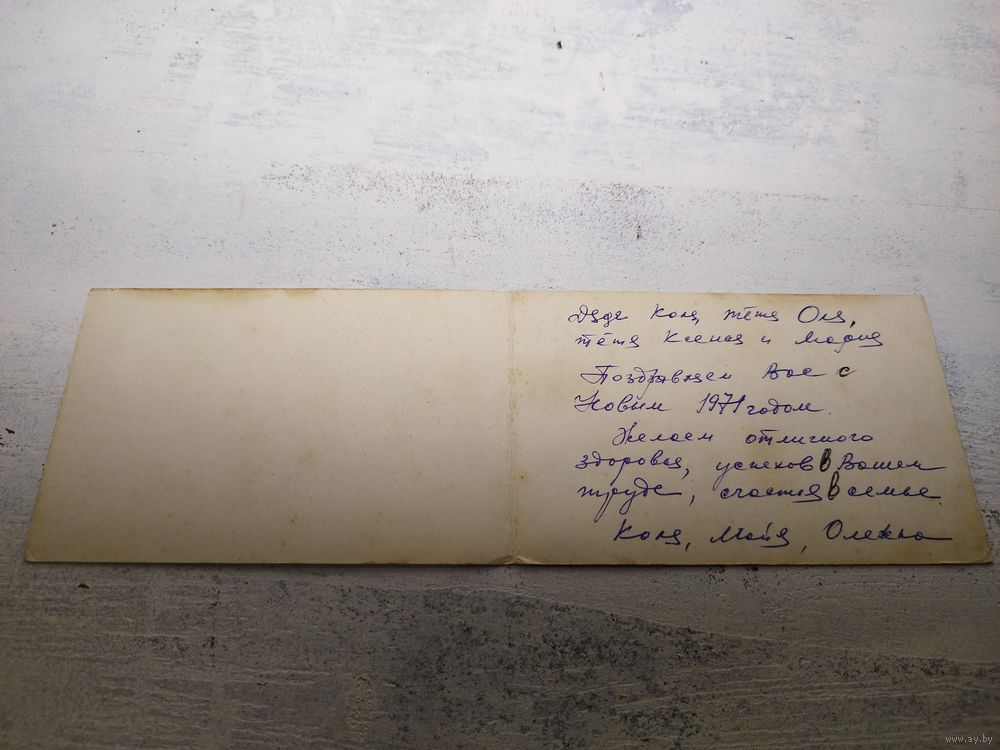 Дядя Коля, тётя Оля,
тётя Ксения и Мария
Поздравляем Вас с
Новым 1971 годом.
Желаем отличного
здоровья, успехов в Вашем
труде, счастья в семье.
Коля, Майя, Олежка
www.ay.by